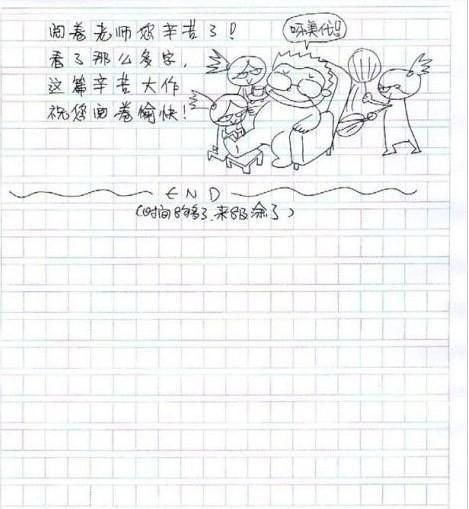 阅卷老师您辛苦了!
看了那么多字,
这篇辛苦大作
祝您阅卷愉快!
呀美代!!
END
(时间够了,来涂了)